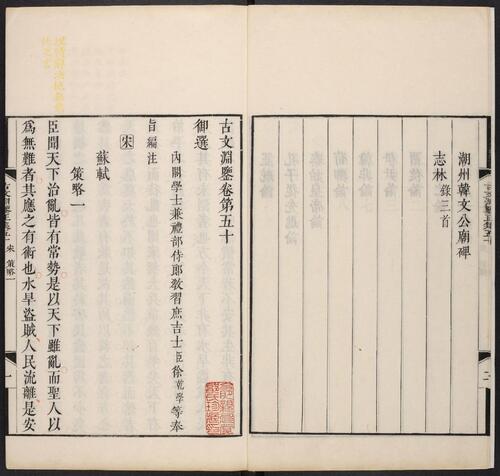 潮州韓文公廟碑
志林錄三首
古文淵鑒卷第五十
御選
內閣學士兼禮部侍郎教習庶吉士臣徐乾學等奉
旨編注
宋
蘇軾
策略一
臣聞天下治亂皆有常勢是以天下雖亂而聖人以
爲無難者其應之有術也水旱盜賊人民流離是安
古文淵鑒卷五十 宋 策略一
一